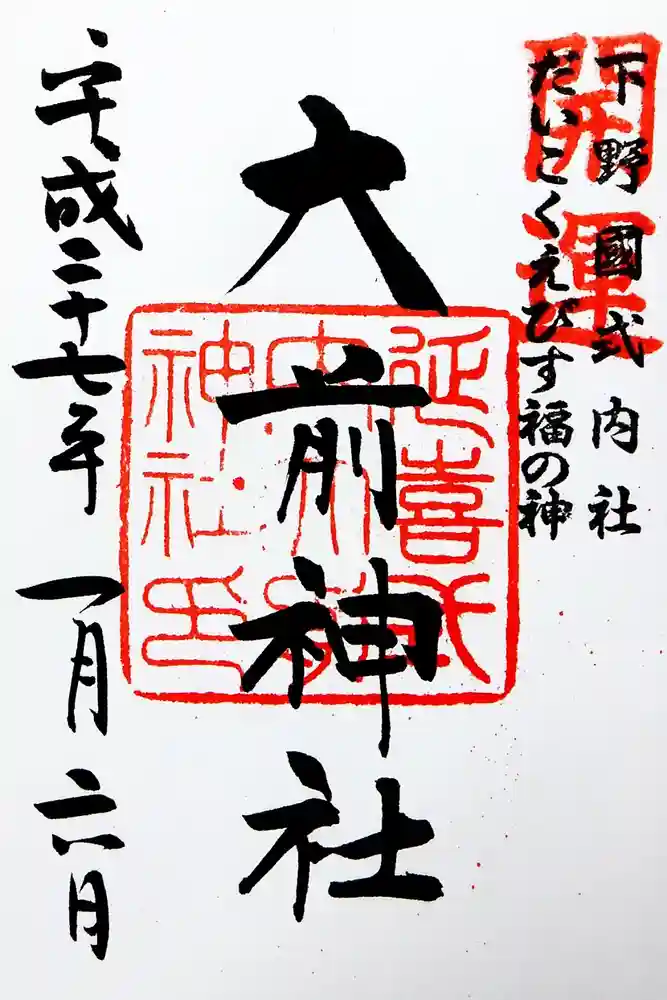 開運
下野國式内社
だいこくえびす福の神
大前神社
延喜式
内大前
神社印
平成二十七年 一月 六月